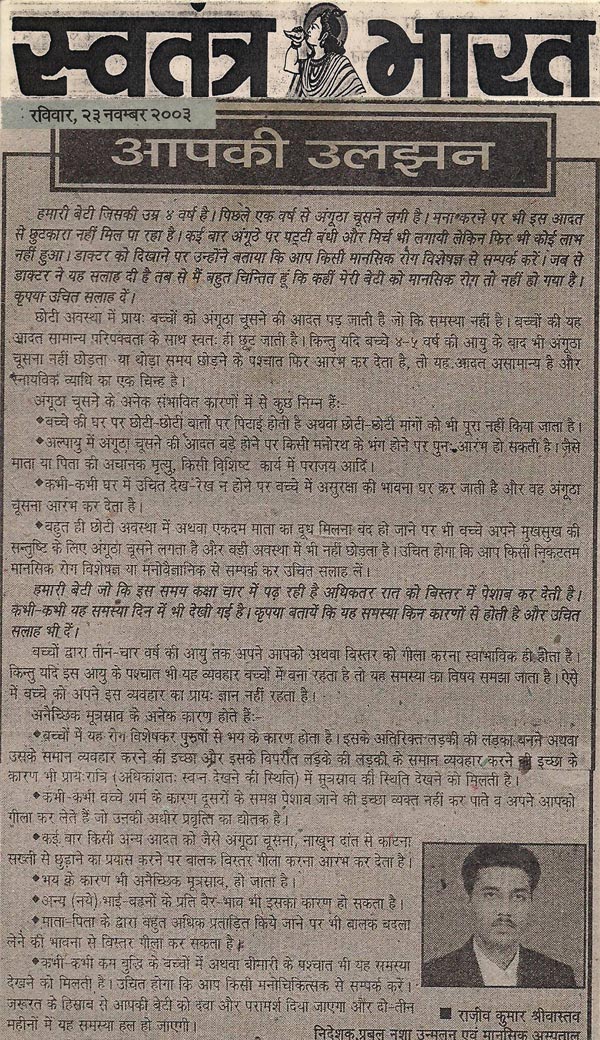 स्वतंत्र भारत
रविवार, २३ नवम्बर २००३
आपकी उलझन
हमारी बेटी जिसकी उम्र ४ वर्ष है। पिछले एक वर्ष से अंगूठा चूसने लगी है। मना करने पर भी इस आदत
से छुटकारा नहीं मिल पा रहा है। कई बार अंगूठे पर पट्टी बंधी और मिर्च भी लगायी लेकिन फिर भी कोई लाभ
नहीं हुआ। डाक्टर को दिखाने पर उन्होंने बताया कि आप किसी मानसिक रोग विशेषज्ञ से सम्पर्क करें। जब से
डाक्टर ने यह सलाह दी है तब से मैं बहुत चिन्तित हूं कि कहीं मेरी बेटी को मानसिक रोग तो नहीं हो गया है।
कृपया उचित सलाह दें।
छोटी अवस्था में प्रायः बच्चों को अंगूठा चूसने की आदत पड़ जाती है जो कि समस्या नहीं है। बच्चों की यह
आदत सामान्य परिपक्वता के साथ स्वतः ही छूट जाती है। किन्तु यदि बच्चे ४-५ वर्ष की आयु के बाद भी अंगूठा
चूसना नहीं छोड़ता या थोड़ा समय छोड़ने के पश्चात फिर आरंभ कर देता है, तो यह आदत असामान्य है और
स्नायविक व्याधि का एक चिन्ह है।
अंगूठा चूसने के अनेक संभावित कारणों में से कुछ निम्न हैं:-
◆बच्चे की घर पर छोटी-छोटी बातों पर पिटाई होती है अथवा छोटी-छोटी मांगों को भी पूरा नहीं किया जाता है।
◆अल्पायु में अंगूठा चूसने की आदत बड़े होने पर किसी मनोरथ के भंग होने पर पुनः आरंभ हो सकती है। जैसे
माता या पिता की अचानक मृत्यु, किसी विशिष्ट कार्य में पराजय आदि।
◆कभी-कभी घर में उचित देख-रेख न होने पर बच्चे में असुरक्षा की भावना घर कर जाती है और वह अंगूठा
चूसना आरंभ कर देता है।
◆बहुत ही छोटी अवस्था में अथवा एकदम माता का दूध मिलना बंद हो जाने पर भी बच्चे अपने मुखसुख की
सन्तुष्टि के लिए अंगूठा चूसने लगता है और बड़ी अवस्था में भी नहीं छोड़ता है। उचित होगा कि आप किसी निकटतम
मानसिक रोग विशेषज्ञ या मनोवैज्ञानिक से सम्पर्क कर उचित सलाह लें।
हमारी बेटी जो कि इस समय कक्षा चार में पढ़ रही है अधिकतर रात को बिस्तर में पेशाब कर देती है।
कभी-कभी यह समस्या दिन में भी देखी गई है। कृपया बतायें कि यह समस्या किन कारणों से होती है और उचित
सलाह भी दें।
बच्चों द्वारा तीन-चार वर्ष की आयु तक अपने आपको अथवा बिस्तर को गीला करना स्वाभाविक ही होता है।
किन्तु यदि इस आयु के पश्चात भी यह व्यवहार बच्चों में बना रहता है तो यह समस्या का विषय समझा जाता है। ऐसे
में बच्चे को अपने इस व्यवहार का प्रायः ज्ञान नहीं रहता है।
अनैच्छिक मूत्रस्राव के अनेक कारण होते हैं:-
◆बच्चों में यह रोग विशेषकर पुरुषों से भय के कारण होता है। इसके अतिरिक्त लड़की की लड़का बनने अथवा
उसके समान व्यवहार करने की इच्छा और इसके विपरीत लड़के की लड़की के समान व्यवहार करने की इच्छा के
कारण भी प्रायः रात्रि (अधिकांशतः स्वप्न देखने की स्थिति) में मूत्रस्राव की स्थिति देखने को मिलती है।
◆कभी-कभी बच्चे शर्म के कारण दूसरों के समक्ष पेशाब जाने की इच्छा व्यक्त नहीं कर पाते व अपने आपको
गीला कर लेते हैं जो उनकी अधीर प्रवृत्ति का द्योतक है।
◆कई बार किसी अन्य आदत को जैसे अंगूठा चूसना, नाखून दांत से काटना
सख्ती से छुड़ाने का प्रयास करने पर बालक बिस्तर गीला करना आरंभ कर देता है।
◆भय के कारण भी अनैच्छिक मूत्रस्राव, हो जाता है।
◆अन्य (नये) भाई-बहनों के प्रति बैर-भाव भी इसका कारण हो सकता है।
◆माता-पिता के द्वारा बहुत अधिक प्रताड़ित किये जाने पर भी बालक बदला
लेने की भावना से बिस्तर गीला कर सकता है।
◆कभी-कभी कम बुद्धि के बच्चों में अथवा बीमारी के पश्चात भी यह समस्या
देखने को मिलती है। उचित होगा कि आप किसी मनोचिकित्सक से सम्पर्क करें।
जरूरत के हिसाब से आपकी बेटी को दवा और परामर्श दिया जाएगा और दो-तीन
महीनों में यह समस्या हल हो जाएगी।
■ राजीव कुमार श्रीवास्तव
निदेशक, प्रबल नशा उन्मूलन एवं मानसिक अस्पताल